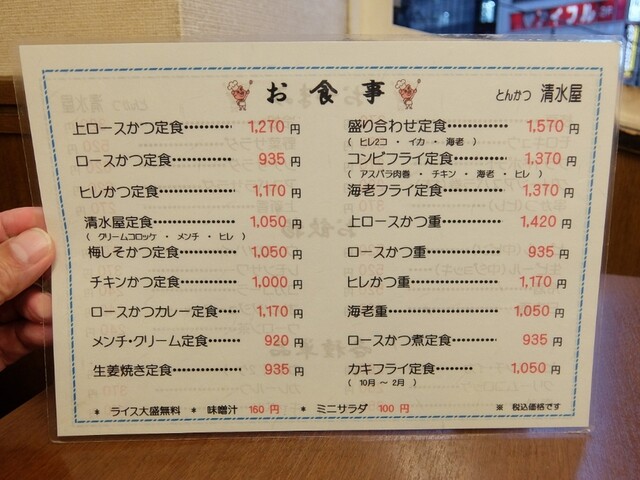 お食事
とんかつ 清水屋
上ロースかつ定食 1,270 円
ロースかつ定食 935 円
ヒレかつ定食 1,170 円
清水屋定食 1,050 円
( クリームコロッケ ・ メンチ ・ ヒレ )
梅しそかつ定食 1,050 円
チキンかつ定食 1,000 円
ロースかつカレー定食 1,170 円
メンチ・クリーム定食 920 円
生姜焼き定食 935 円
盛り合わせ定食 1,570 円
( ヒレ2コ ・ イカ ・ 海老 )
コンビフライ定食 1,370 円
( アスパラ肉巻 ・ チキン ・ 海老 ・ ヒレ )
海老フライ定食 1,370 円
上ロースかつ重 1,420 円
ロースかつ重 935 円
ヒレかつ重 1,170 円
海老重 1,050 円
ロースかつ煮定食 935 円
カキフライ定食 1,050 円
( 10月 ～ 2月 )
* ライス大盛無料 * 味噌汁 160 円 * ミニサラダ 100 円
※ 税込価格です